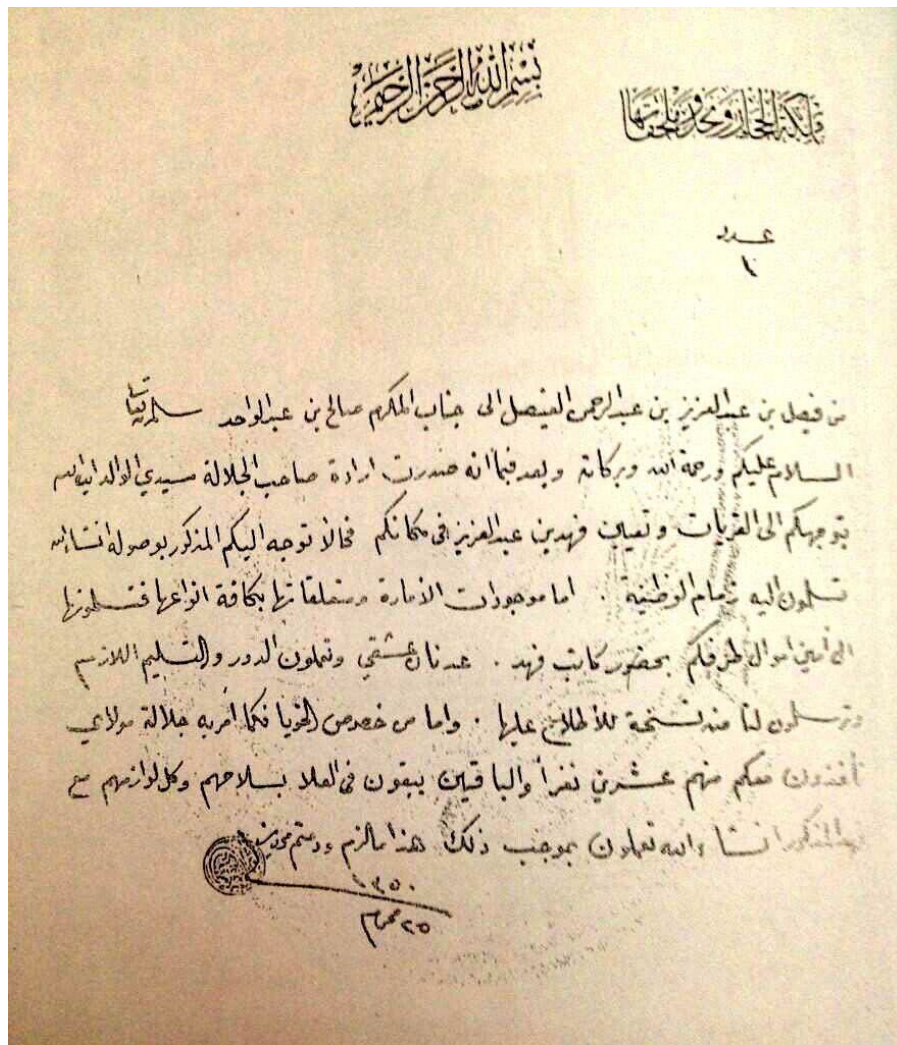 بسم الله الرحمن الرحيم
مملكة الحجاز ونجد وملحقاتها
عدد
١٠
من فيصل بن عبدالعزيز بن عبدالرحمن الفيصل الى جناب المكرم صالح بن عبدالواحد سلمه الله تعالى
السلام عليكم ورحمة الله وبركاته وبعد فبما انه صدرت ارادة صاحب الجلالة سيدي الوالد ايده الله
بتوجهكم الى القريات وتعيين فهد بن عبدالعزيز في مكانكم فحالا توجه اليكم المذكور بوصوله انشاء الله
تسلمون اليه زمام الوظيفة . اما موجودات الامارة ومتعلقاتها بكافة انواعها فتسلمونها
الى أمين اموال طرفكم بحضور كاتب فهد . عدنان عشقي وتعملون الدور والتسليم اللازم
وترسلون لنا منه نسخة للأطلاع عليها . واما من خصوص الخويا فكما أمر به جلالة مولاي
تأخذون معكم منهم عشرين نفراً والباقين يبقون في العلا بسلاحهم وكل لوازمهم مع
المذكور انشاء الله تعملون بموجب ذلك هذا مالزم ودمتم محروسين
١٣٥٠
٢٥ محرم